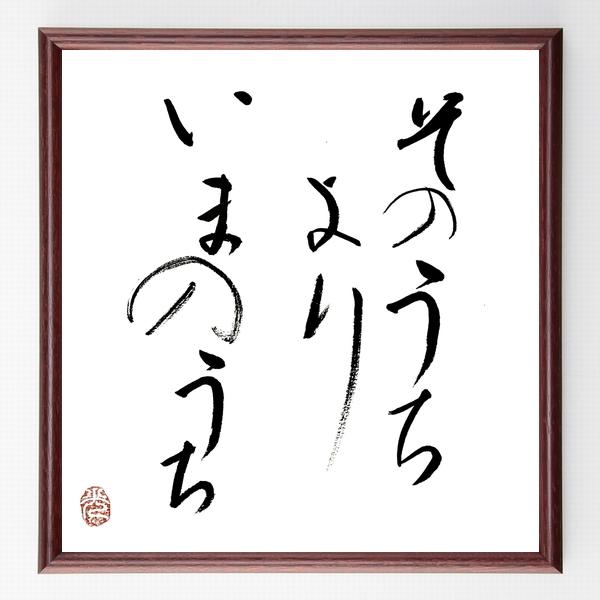 そのうち
より
いまのうち